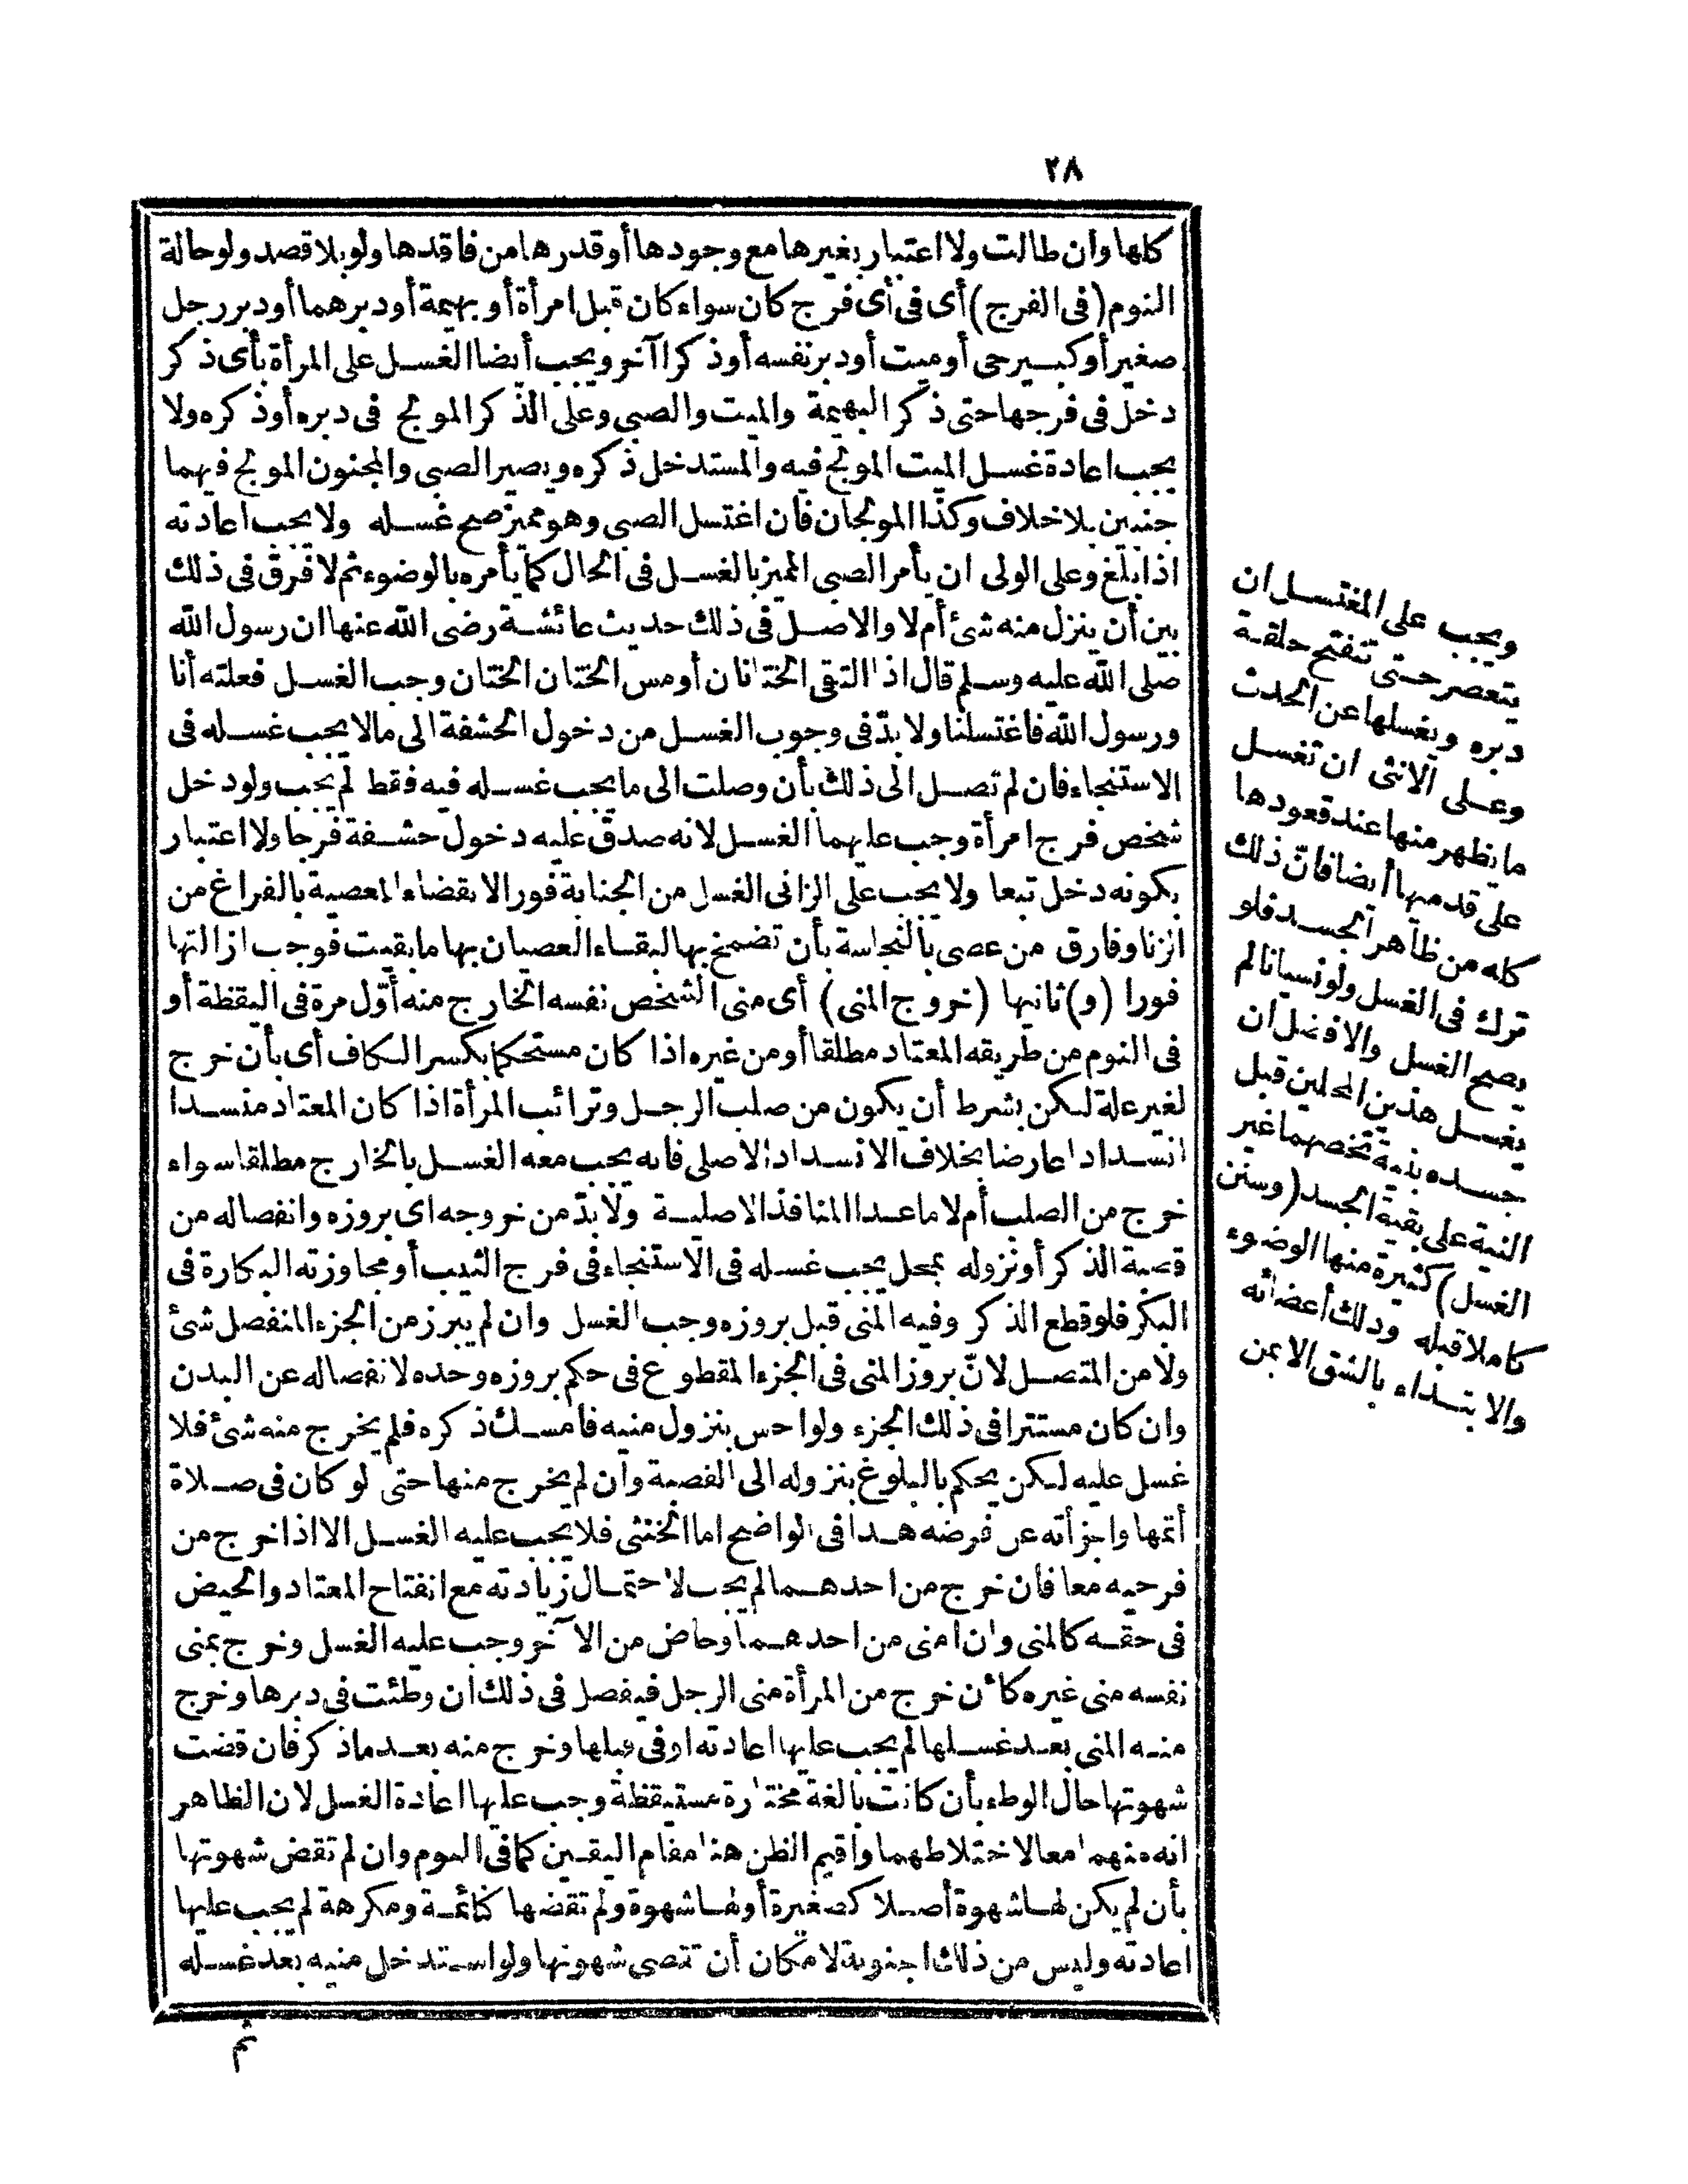 ٢٨
كلها وان طالت ولا اعتبار بغيرها مع وجودها أو قدرها من فاقدها ولو بلا قصد ولو حالة
النوم (فى الفرج) أى فى أى فرج كان سواء كان قبل امرأة أو بهيمة أو دبرهما أو دبر رجل
صغير أو كبير حى أو ميت أو دبر نفسه أو ذكرا آخر ويجب أيضا الغسل على المرأة بأى ذكر
دخل فى فرجها حتى ذكر البهيمة والميت والصبى وعلى الذكر المولج فى دبره أو ذكره ولا
يجب اعادة غسل الميت المولج فيه والمستدخل ذكره ويصير الصبى والمجنون المولج فيهما
جنبين بلا خلاف وكذا المولجان فان اغتسل الصبى وهو مميز صح غسله ولا يجب اعادته
اذا بلغ وعلى الولى ان يأمر الصبى المميز بالغسل فى الحال كما يأمره بالوضوء ثم لا فرق فى ذلك
بين أن ينزل منه شئ أم لا والاصل فى ذلك حديث عائشة رضى الله عنها ان رسول الله
صلى الله عليه وسلم قال اذا التقى الختانان أو مس الختان الختان وجب الغسل فعلته أنا
ورسول الله فاغتسلنا ولا بدّ فى وجوب الغسل من دخول الحشفة الى مالا يجب غسله فى
الاستنجاء فان لم تصل الى ذلك بأن وصلت الى ما يجب غسله فيه فقط لم يجب ولو دخل
شخص فرج امرأة وجب عليهما الغسل لانه صدق عليه دخول حشفة فرجا ولا اعتبار
بكونه دخل تبعا ولا يجب على الزانى الغسل من الجنابة فورا لانقضاء المعصية بالفراغ من
الزنا وفارق من عصى بالنجاسة بأن تضمخ بها لبقاء العصيان بها ما بقيت فوجب ازالتها
فورا (و) ثانيها (خروج المنى) أى منى الشخص نفسه الخارج منه أوّل مرة فى اليقظة أو
فى النوم من طريقه المعتاد مطلقا أو من غيره اذا كان مستحكما بكسر الكاف أى بأن خرج
لغير علة لكن بشرط أن يكون من صلب الرجل وترائب المرأة اذا كان المعتاد منسدا
انسدادا عارضا بخلاف الانسداد الاصلى فانه يجب معه الغسل بالخارج مطلقا سواء
خرج من الصلب أم لا ما عدا المنافذ الاصلية ولا بدّ من خروجه اى بروزه وانفصاله من
قصبة الذكر أو نزوله بمحل يجب غسله فى الاستنجاء فى فرج الثيب أو مجاوزته البكارة فى
البكر فلو قطع الذكر وفيه المنى قبل بروزه وجب الغسل وان لم يبرز من الجزء المنفصل شئ
ولا من المتصل لانّ بروز المنى فى الجزء المقطوع فى حكم بروزه وحده لانفصاله عن البدن
وان كان مستترا فى ذلك الجزء ولو احس بنزول منيه فامسك ذكره فلم يخرج منه شئ فلا
غسل عليه لكن يحكم بالبلوغ بنزوله الى القصبة وان لم يخرج منها حتى لو كان فى صلاة
أتمها واجزأته عن فرضه هذا فى الواضح اما الخنثى فلا يجب عليه الغسل الا اذا خرج من
فرجيه معا فان خرج من احدهما لم يجب لاحتمال زيادته مع انفتاح المعتاد والحيض
فى حقه كالمنى وان امنى من احدهما وحاض من الآخر وجب عليه الغسل وخرج بمنى
نفسه منى غيره كأن خرج من المرأة منى الرجل فيفصل فى ذلك ان وطئت فى دبرها وخرج
منه المنى بعد غسلها لم يجب عليها اعادته او فى قبلها وخرج منه بعد ما ذكر فان قضت
شهوتها حال الوطء بأن كانت بالغة مختارة مستيقظة وجب عليها اعادة الغسل لان الظاهر
انه منهما معا لاختلاطهما واقيم الظن هنا مقام اليقين كما فى النوم وان لم تقض شهوتها
بأن لم يكن لها شهوة أصلا كصغيرة أو لها شهوة ولم تقضها كنائمة ومكرهة لم يجب عليها
اعادته وليس من ذلك اجنوبة لامكان أن تقضى شهوتها ولو استدخل منيه بعد غسله
ثم
ويجب على المغتسل ان
يتعصر حتى تنفتح حلقة
دبره ويغسلها عن الحدث
وعلى الانثى ان تغسل
ما يظهر منها عند قعودها
على قدميها أيضا فانّ ذلك
كله من ظاهر الجسد فلو
ترك فى الغسل ولو نسيانا لم
يصح الغسل والافضل ان
يغسل هذين المحلين قبل
جسده بنية تخصهما غير
النية على بقية الجسد (وسنن
الغسل) كثيرة منها الوضوء
كاملا قبله ودلك أعضائه
والابتداء بالشق الايمن